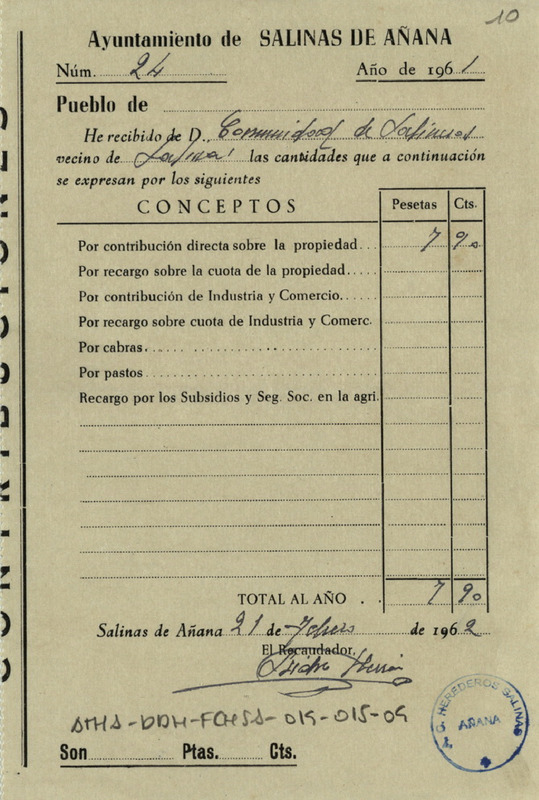 10
Ayuntamiento de SALINAS DE AÑANA
Núm. 24 Año de 1961
Pueblo de
He recibido de D., Comunidad de Salineros
vecino de Salinas las cantidades que a continuación
se expresan por los siguientes
CONCEPTOS Pesetas Cts.
Por contribución directa sobre la propiedad... 7 90
Por recargo sobre la cuota de la propiedad.....
Por contribución de Industria y Comercio......
Por recargo sobre cuota de Industria y Comerc.
Por cabras....
Por pastos
Recargo por los Subsidios y Seg. Soc. en la agri.
TOTAL AL AÑO . . 7 90
Salinas de Añana 21 de Febrero de 1962
El Recaudador,
Isidro
ATHA-DDH-FCHSA-019-015-09
Son Ptas. Cts.
HEREDEROS SALINAS
AÑANA
CONTRIBUCIONES